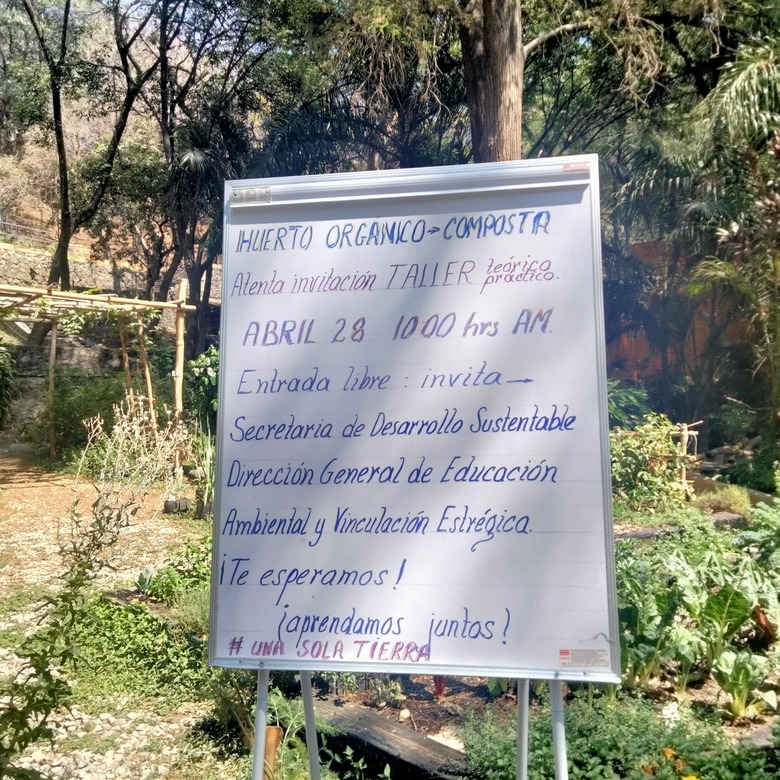 HUERTO ORGÁNICO→COMPOSTA
Atenta invitación TALLER teórico práctico.
ABRIL 28 10:00 hrs AM.
Entrada libre : invita→
Secretaria de Desarrollo Sustentable
Dirección General de Educación
Ambiental y Vinculación Estrégica.
¡Te esperamos!
¡aprendamos juntos!
# UNA SOLA TIERRA